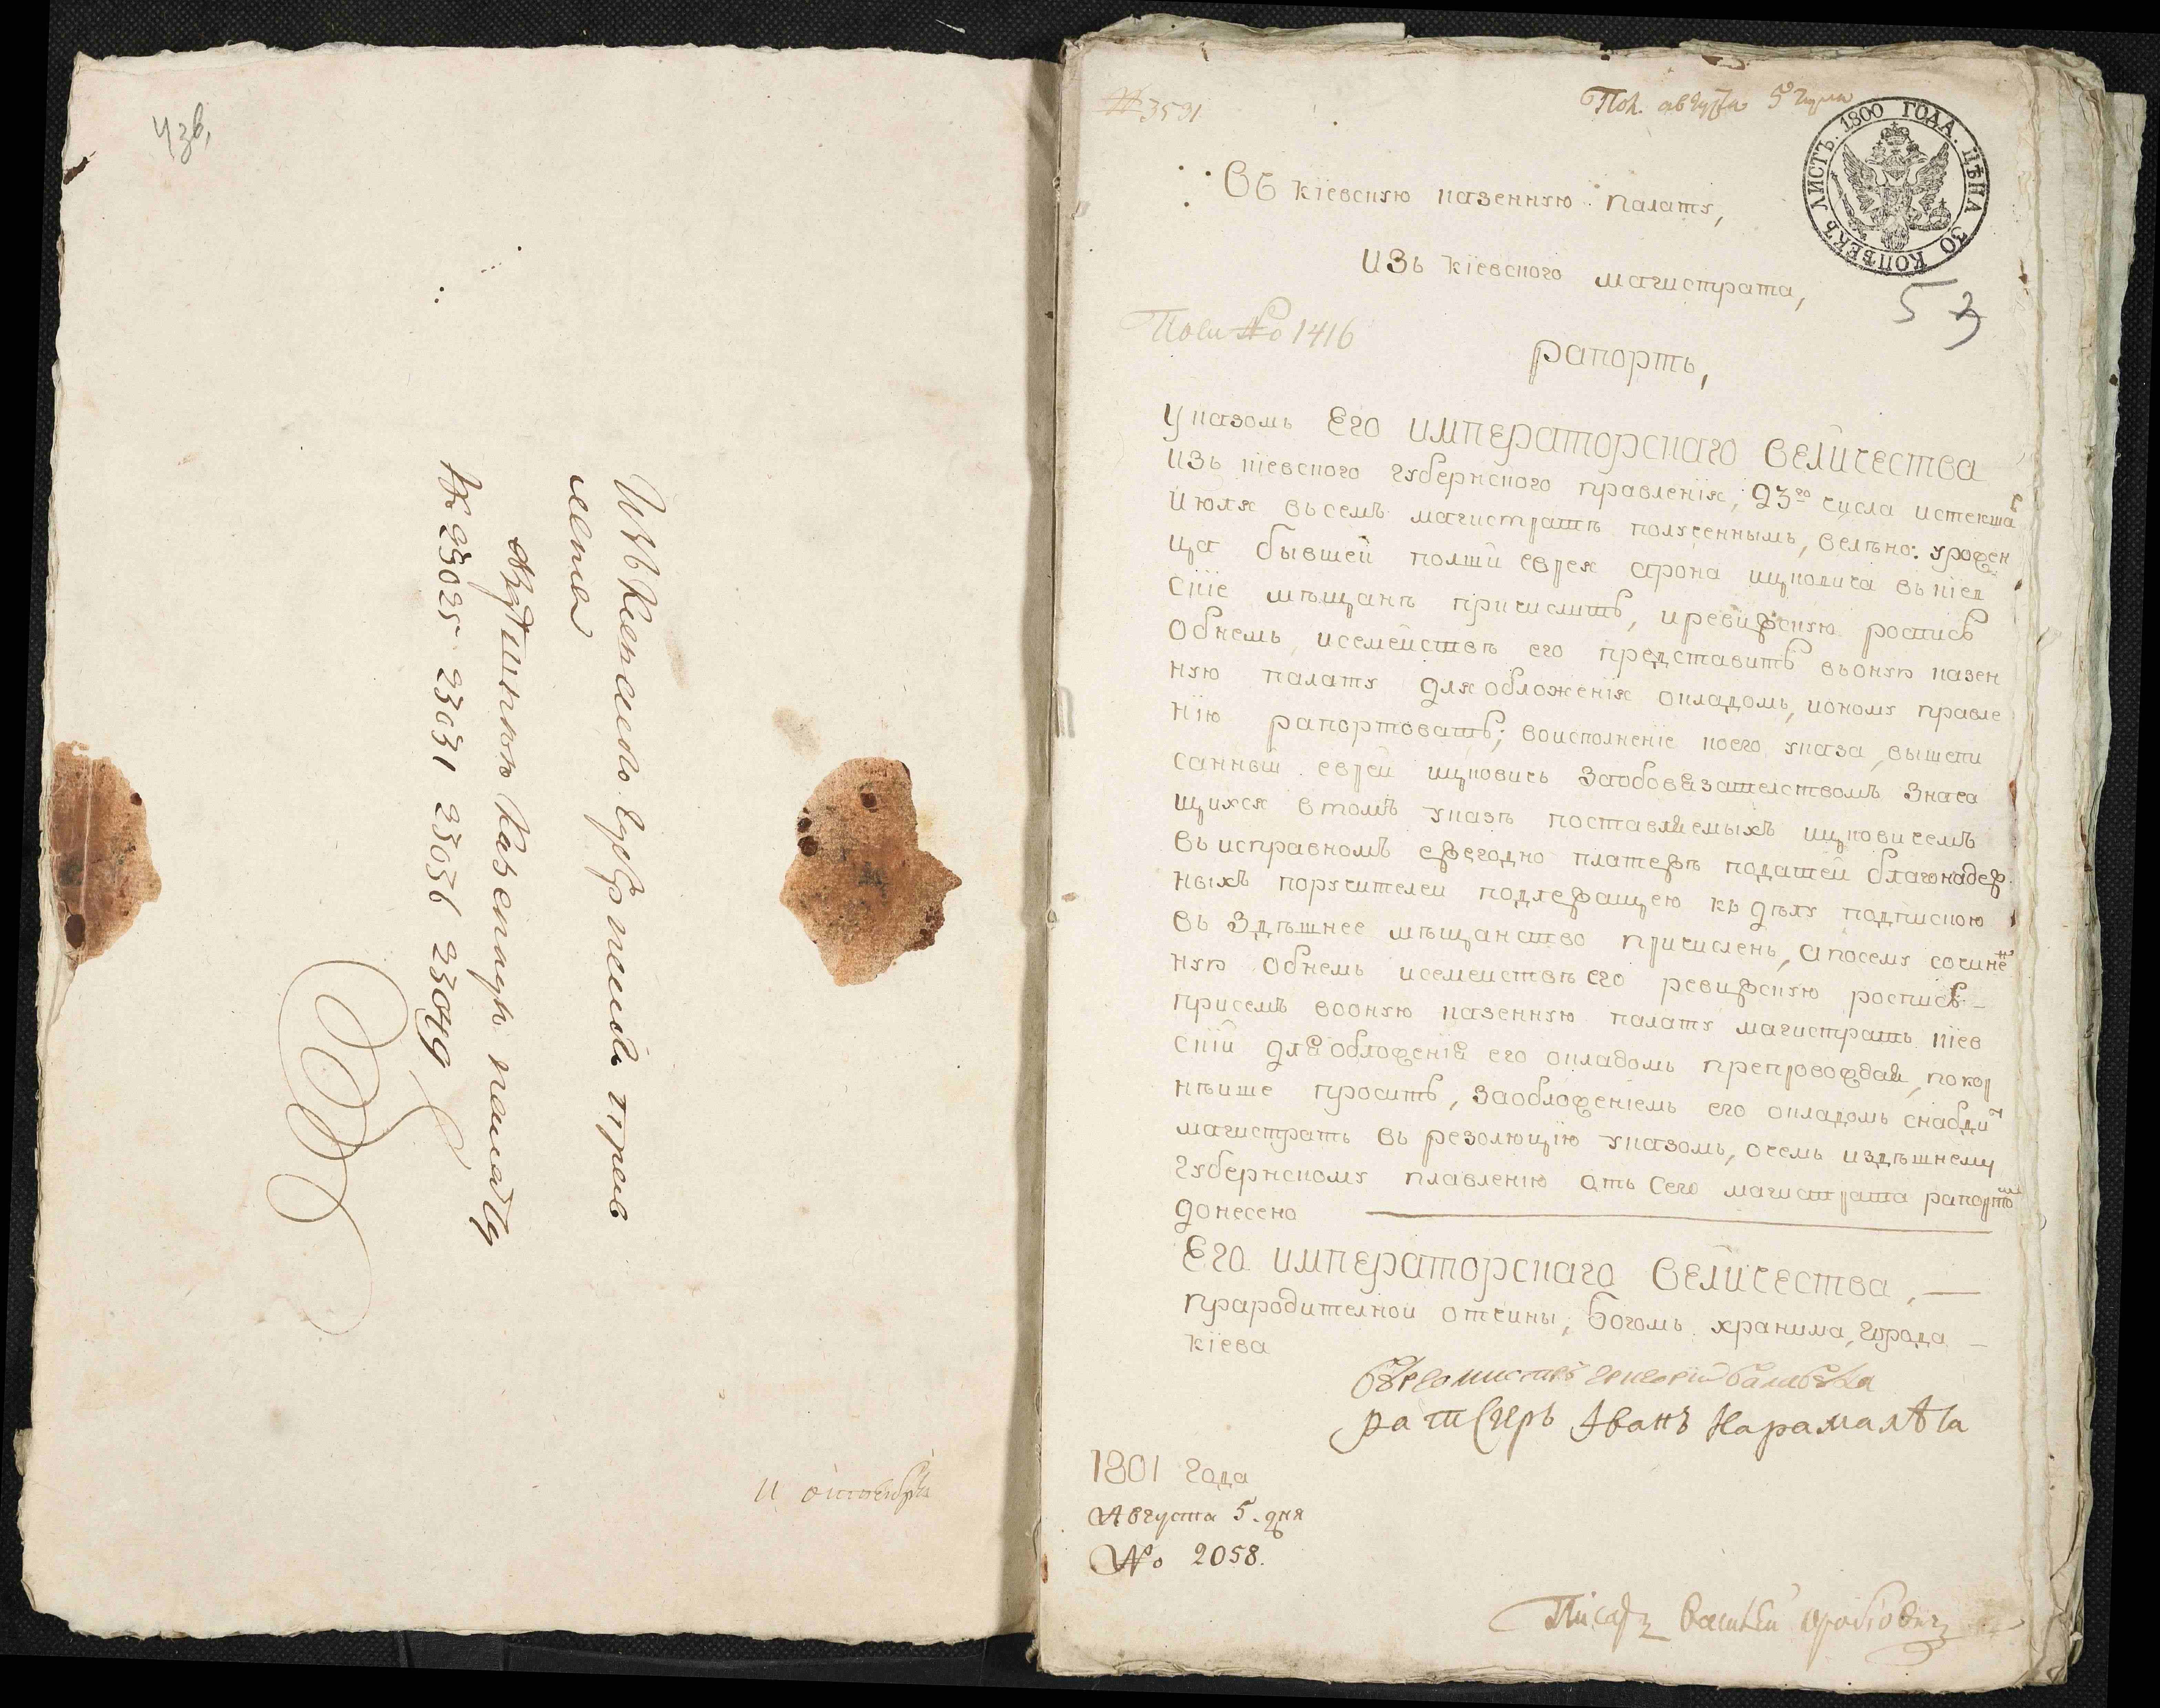 Изъ Киевскаго Губернскаго прав
ления
въ Киевскую Казенную палату
№ 23025 23031 23036 23049
11 октября
№ 3531
Пол. августа 5го числа
ЛИСТЪ. 1800 ГОДА. ЦѢНА 30 КОПѢЕКЪ
Въ кіевскую казенную палату,
изъ кіевского магистрата,
53
№ 1416
рапортъ,
Указомъ Его императорскаго величества
изъ кіевского губернского правленія, 23го числа истекша
июля въ семъ магистратѣ полученнымъ, велѣно: урожен
ца бывшей полши еврея арона ицковича въ кіев
скіе мѣщанѣ причислить, и ревизскую роспись
объ немъ, и семействѣ его представить въ оную казен
ную палату для обложенія окладомъ, и оному правле
нію рапортовать; во исполненіе коего указа, вышепи
санный еврей ицковичъ за обовязателствомъ знача
щихся в томъ указѣ поставляемыхъ ицковичемъ
въ исправномъ ежегодно платежѣ податей благонадеж
ныхъ поручителей подлежащею къ дѣлу подпискою
въ здѣшнее мѣщанство причисленъ, а посему сочинен
ную объ немъ и семействѣ его ревизскую роспись
при семъ во оную казенную палату магистратъ кіев
скій для обложенія его окладомъ препровождая, покор
нѣише проситъ, за обложеніемъ его окладомъ снабдит
магистратъ въ резолюцію указомъ, о чемъ и здѣшнему
губернскому плавленію отъ сего магистрата рапортом
донесено
Его императорскаго величества,
прародителной отчины, Богомъ хранима, города
кіева
Бургомистръ
ратсгеръ Іванъ Карамалѣа
1801 года
Августа 5. дня
№ 2058.
Писарь Василій